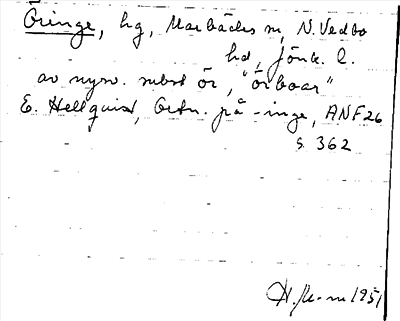 Öringe, hg, Marbäcks sn, N. Vedbo
hd, Jönk. l.
av nysv. subst ör, "örboar"
E. Hellquist, Ortn. på -inge, ANF 26
s. 362
1951